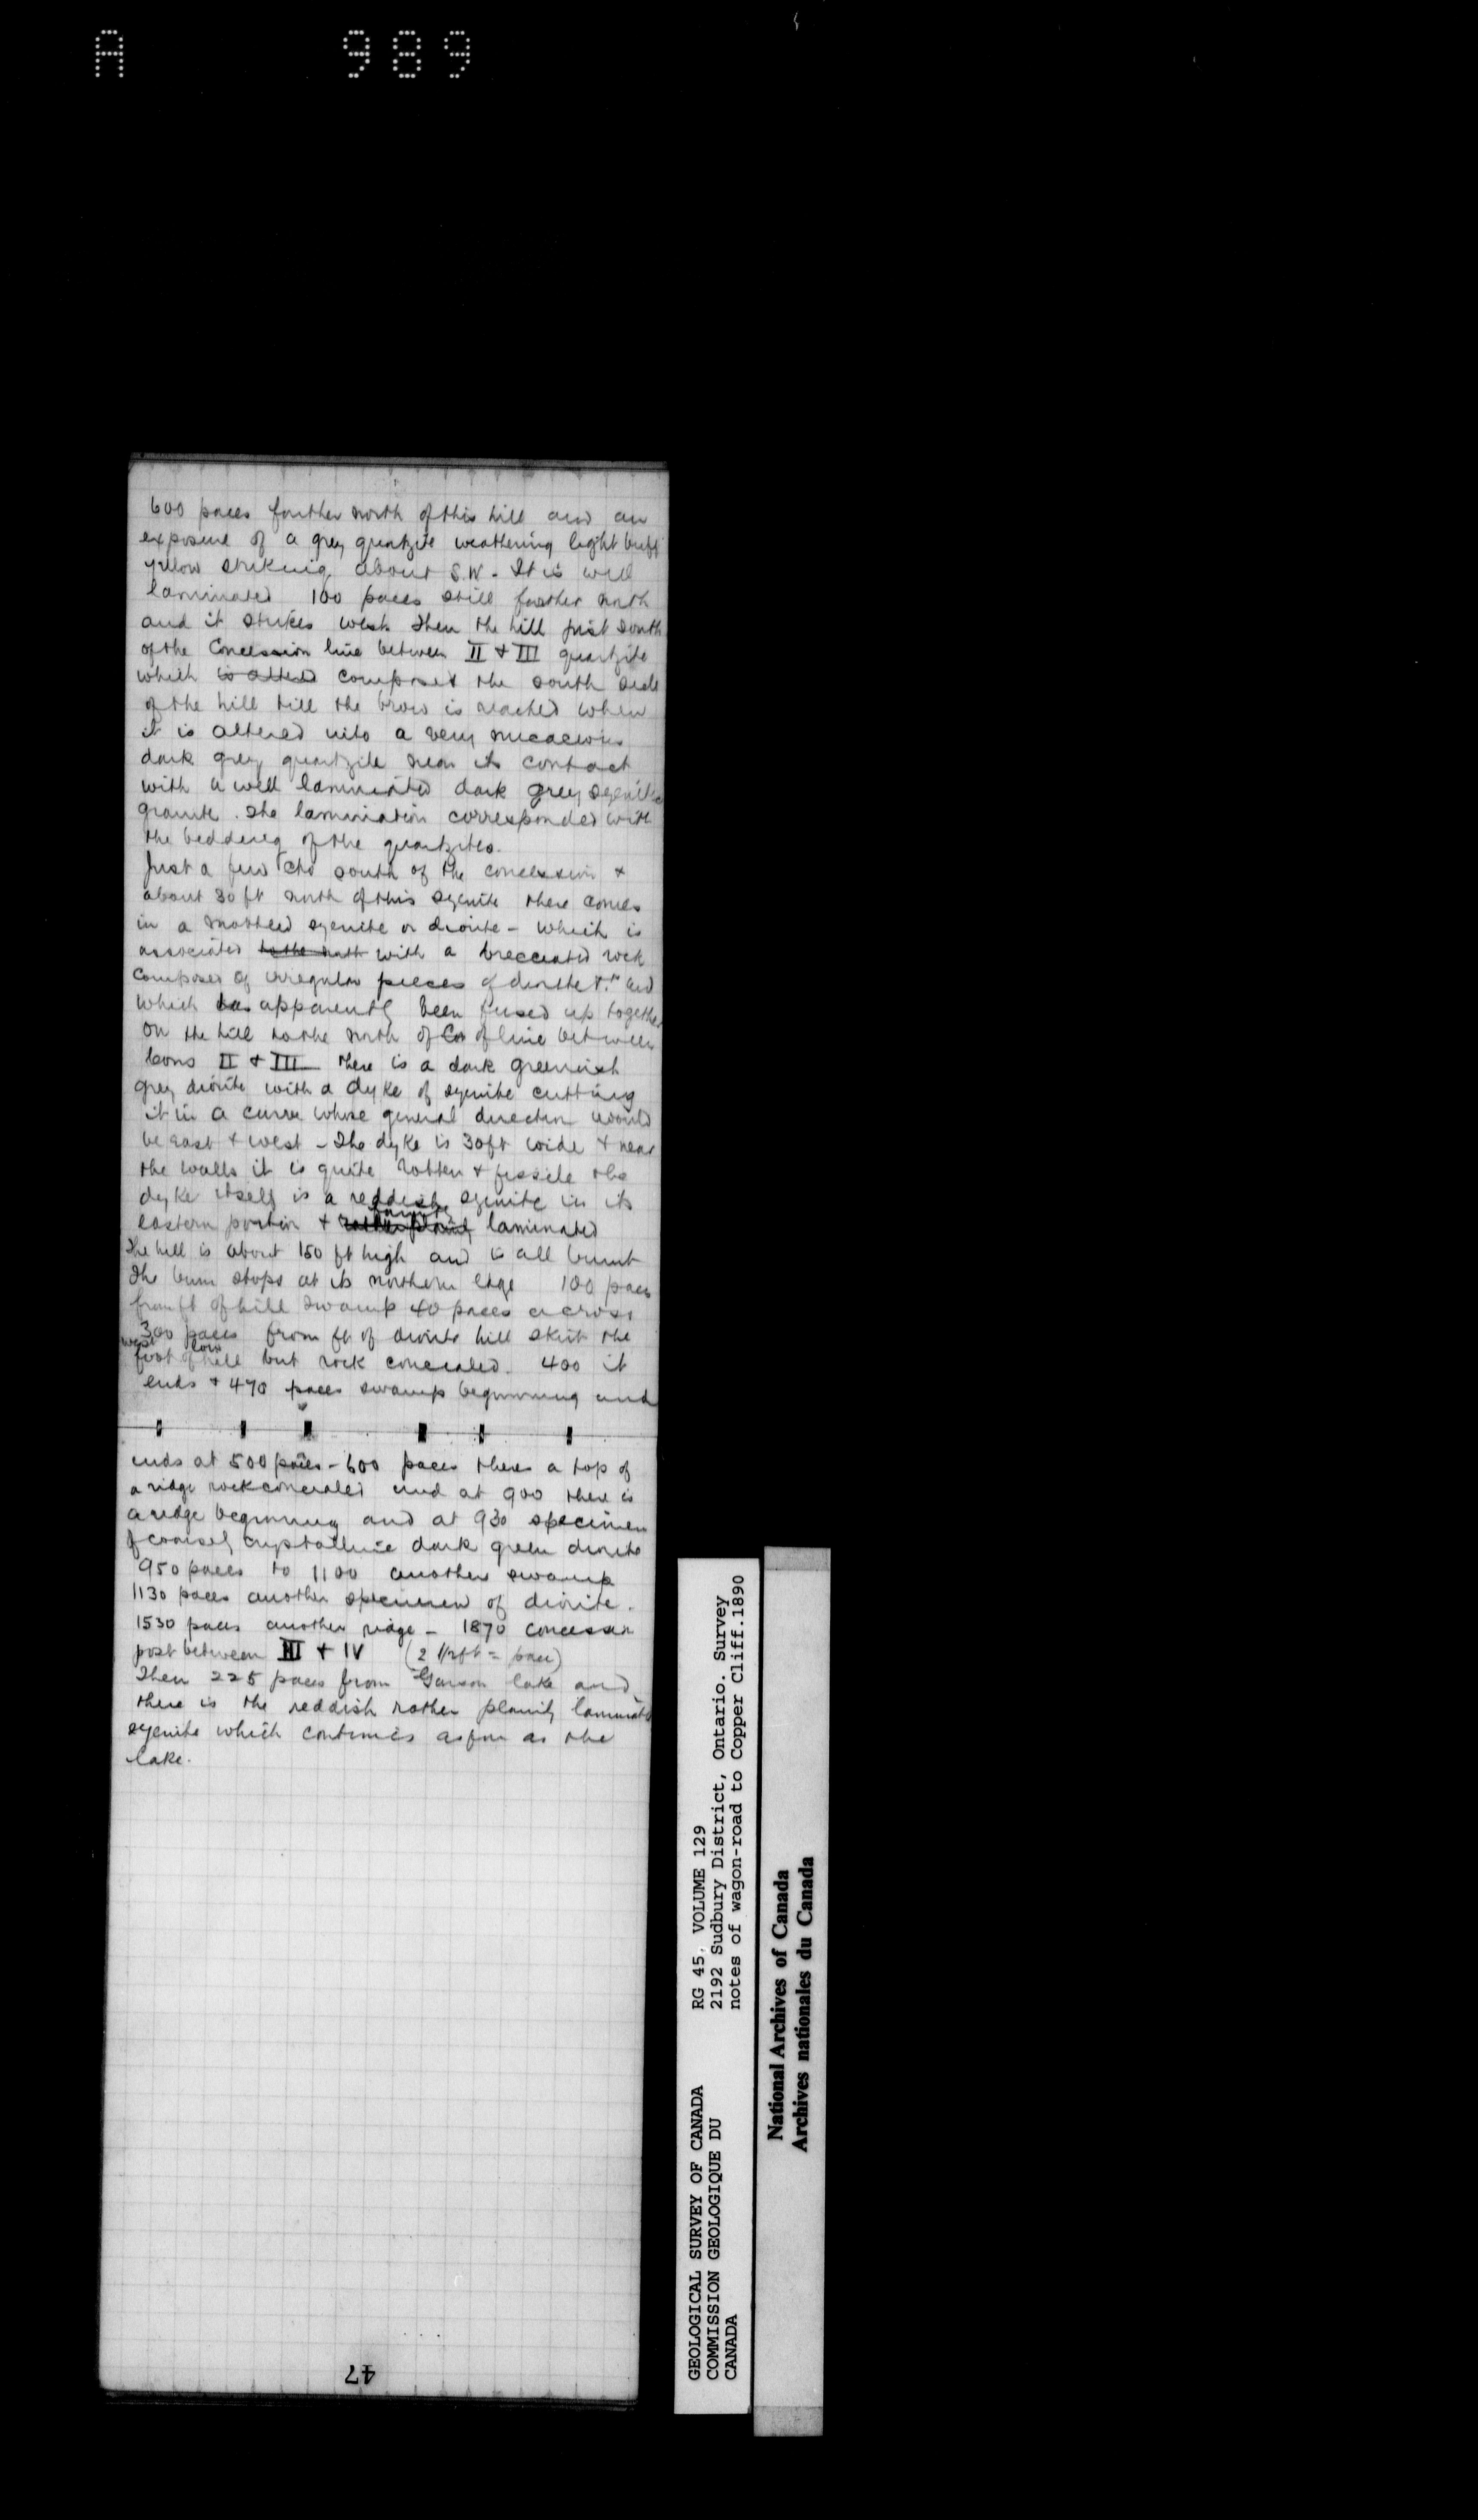 A 989
600 paces farther north of this hill and an
exposure of a grey quartzite weathering light buff
yellow striking about S.W. - It is well
laminated 100 paces still farther north
and it strikes west. Then the hill just south
of the Concession line between II + III quartzite
which is altered composes the south side
of the hill till the brow is reached when
it is altered into a very micaceous
dark grey quartzite near its contact
with a well laminated dark grey syenitic
granite. The lamination corresponded with
the bedding of the quartzites.
Just a few chs south of the concession +
about 30 ft north of this syenite there comes
in a mottled syenite or diorite - which is
associated to the north with a brecciated rock
composed of irregular pieces of diorite and
which has apparently been fused up together
On the hill to the north of Con of line between
Cons II + III there is a dark greenish
grey diorite with a dyke of syenite cutting
it in a curve whose general direction would
be east + west - The dyke is 30 ft wide + near
the walls it is quite rotten + fissile the
dyke itself is a reddish syenite in its
eastern portion + rather plainly faintly laminated
The hill is about 150 ft high and is all burnt
The burn stops at its northern edge 100 paces
from ft of hill swamp 40 paces across
300 paces from ft of diorite hill skirt the
west foot of low hill but rock concealed. 400 it
ends + 470 paces swamp beginning and
ends at 500 paces - 600 paces theres a top of
a ridge rock concealed and at 900 there is
a ridge beginning and at 930 specimen
of coarsely crystalline dark green diorite
950 paces to 1100 another swamp
1130 paces another specimen of diorite.
1530 paces another ridge - 1870 concession
post between III + IV (2 1/2 ft = pace)
Then 225 paces from Garson lake and
there is the reddish rather plainly laminated
syenite which continues as far as the
lake.
47
GEOLOGICAL SURVEY OF CANADA
COMMISSION GEOLOGIQUE DU
CANADA
RG 45, VOLUME 129
2192 Sudbury District, Ontario. Survey
notes of wagon-road to Copper Cliff.1890
National Archives of Canada
Archives nationales du Canada